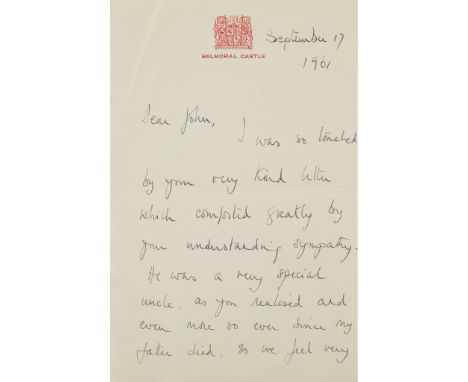 BALMORAL CASTLE
September 17
1961
Dear John,
I was so touched
by your very kind letter
which comforted greatly by
your understanding sympathy.
He was a very special
uncle, as you realised and
even more so ever since my
father died, so we feel very